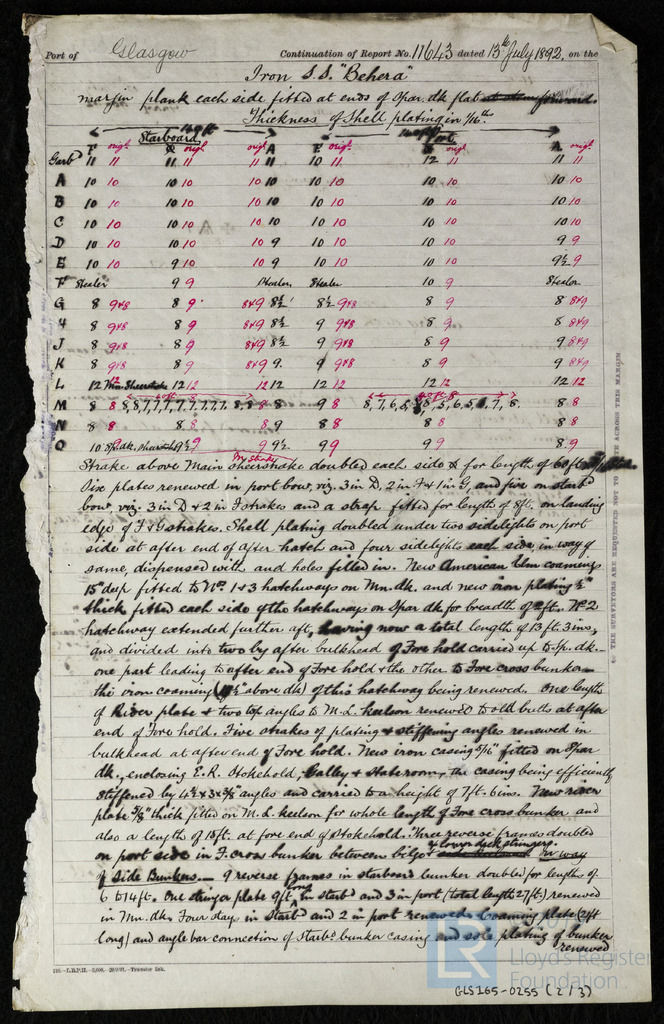 Port of Glasgow Continuation of Report No. 11643 dated 13th July 1892, on the
Iron S.S. "Behera"
margin plank each side fitted at ends of Spar dk flat
Thickness of Shell plating in 1/16ths.
Starboard Port
F origl origl origl A F origl origl A origl
Garbd 11 11 11 11 11 11 10 11 12 11 11 11
A 10 10 10 10 10 10 10 10 10 10 10 10
B 10 10 10 10 10 10 10 10 10 10 10 10
C 10 10 10 10 10 10 10 10 10 10 10 10
D 10 10 10 10 10 9 10 10 10 10 9 9
E 10 10 9 10 10 9 10 10 10 10 9½ 9
F Stealer 9 9 Stealer Stealer 10 9 Stealer
G 8 9&8 8 9 8&9 8½ 8½ 9&8 8 9 8 8&9
H 8 9&8 8 9 8&9 8½ 9 9&8 8 9 8 8&9
J 8 9&8 8 9 8&9 8½ 9 9&8 8 9 9 8&9
K 8 9&8 8 9 8&9 9 9 9&8 8 9 8 8&9
L 12 12 Mn. Sheerstrake 12 12 12 12 12 12 12 12 12 12
M 8 8 8, 8, 7, 7, 7, 7, 7, 7, 7. 8. 8 8 8 9 8 8, 7, 6, 5, 6, 5, 7, 8. 8 8
N 8 8 8 8 8 8 8 8 8 8 8 8
O 10 Sp. dk. sheerstrake 9½ 9 9 9½ 9 9 9 9 8 9
Strake above Main sheerstrake doubled each side & for length of 60ft
Six plates renewed in port bow, viz. 3 in D, 2 in F & 1 in G, and five on starbd
bow, viz. 3 in D & 2 in F strakes and a strap fitted for length of 8ft. on landing
edge of F & G strakes. Shell plating doubled under two sidelights on port
side at after end of after hatch and four sidelights each side in way of
same, dispensed with and holes filled in. New American Elm coamings
15" deep fitted to Nos. 1 & 3 hatchways on Mn. dk. and new iron plating
thick fitted each side of the hatchways on Spar dk for breadth of 2ft. No. 2
hatchway extended further aft, having now a total length of 13 ft. 3 ins,
and divided into two by after bulkhead of Fore hold carried up to Sp. dk.
one part leading to after end of Fore hold & the other to Fore cross bunker
this iron coaming above dk) of this hatchway being renewed. One length
of Rider plate & two top angles to M.L. keelson renewed to old butts at after
end of Fore hold. Five strakes of plating & stiffening angles renewed in
bulkhead at after end of Fore hold. New iron casing 5/16" fitted on Spar
dk., enclosing E.R. Stokehold, Galley & Staterooms, the casing being efficiently
stiffened by angles and carried to a height of 7ft. 6ins. New rider
plate thick fitted on M.L. keelson for whole length of Fore cross bunker and
also a length of 18ft. at fore end of Stokehold. Three reverse frames doubled
on port side in F. cross bunker between bilge & lower deck stringers. In way
of Side Bunkers. 9 reverse frames in starboard bunker doubled for lengths of
6 to 14ft. One stringer plate 9ft. long in starbd and 3 in port (total length 27ft) renewed
in Mn. dk. Four days in Starbd and 2 in port renewed. Coaming plate (2ft
long) and angle bar connection of starbd bunker casing and sole plating of bunker
renewed
THE SURVEYORS ARE REQUESTED NOT TO WRITE ACROSS THIS MARGIN
Lloyd's Register
Foundation
GLS165-0255 (2/3)